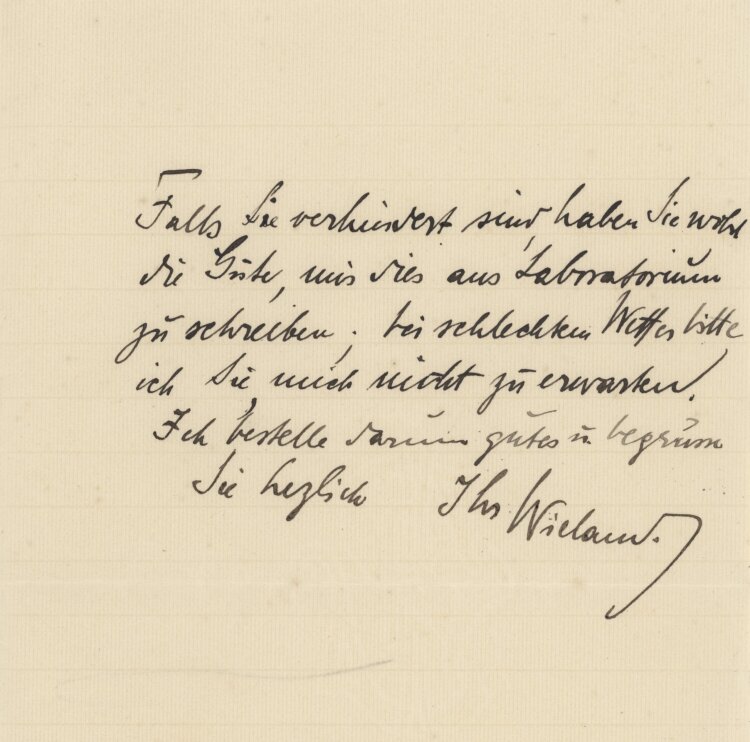 Falls Sie verhindert sind, haben Sie wohl
die Güte, mir dies ans Laboratorium
zu schreiben; bei schlechtem Wetter bitte
ich Sie, mich nicht zu erwarten.
Ich bestelle darum gutes u. begrüsse
Sie herzlich Ihr Wieland.